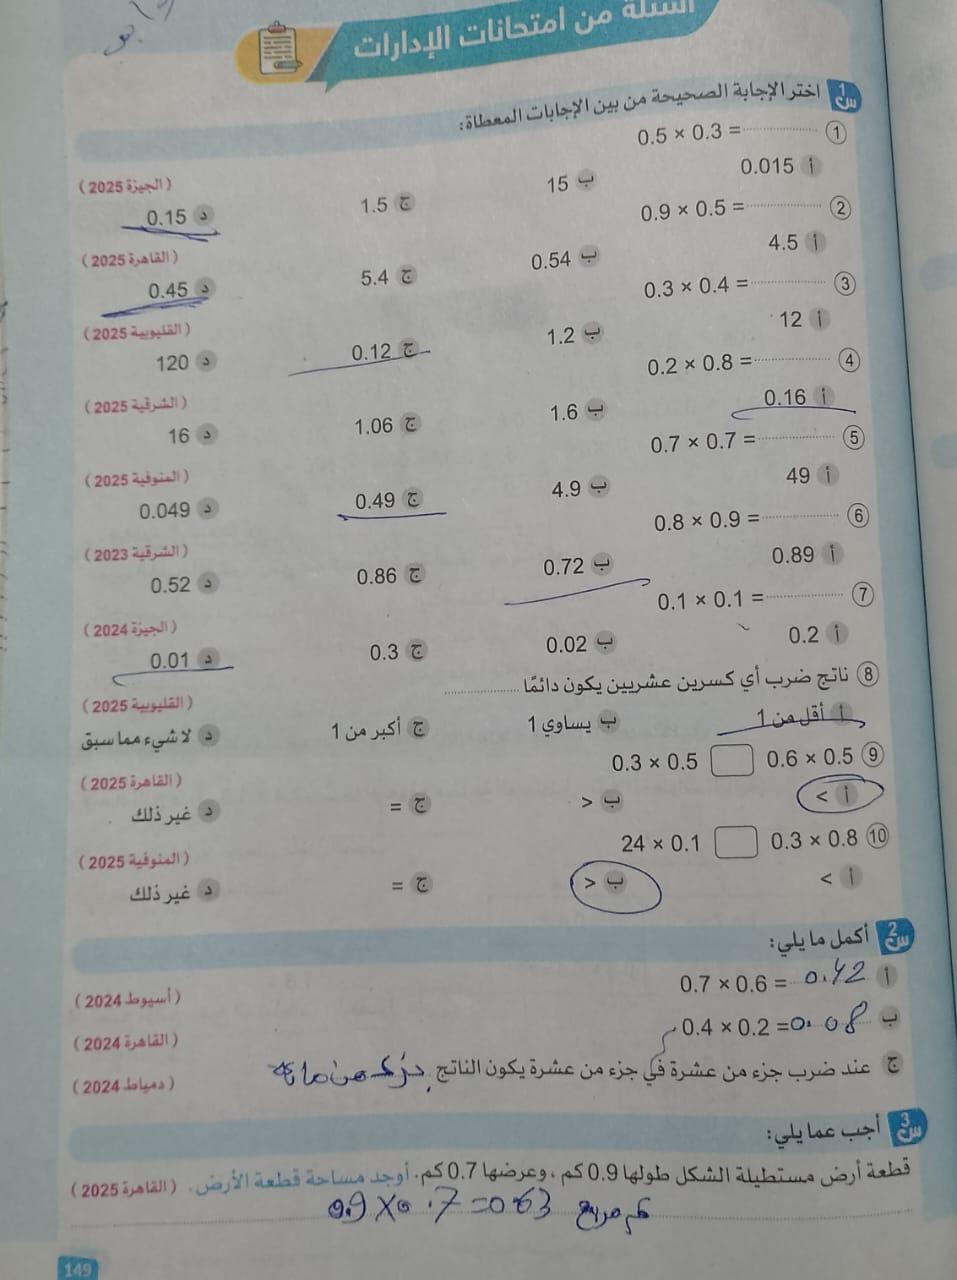 أسئلة من امتحانات الإدارات
س1 اختر الإجابة الصحيحة من بين الإجابات المعطاة:
1 0.5 × 0.3 = ............ (الجيزة 2025)
أ 0.015 ب 15 ج 1.5 د 0.15
2 0.9 × 0.5 = ............ (القاهرة 2025)
أ 4.5 ب 0.54 ج 5.4 د 0.45
3 0.3 × 0.4 = ............ (القليوبية 2025)
أ 12 ب 1.2 ج 0.12 د 120
4 0.2 × 0.8 = ............ (الشرقية 2025)
أ 0.16 ب 1.6 ج 1.06 د 16
5 0.7 × 0.7 = ............ (المنوفية 2025)
أ 49 ب 4.9 ج 0.49 د 0.049
6 0.8 × 0.9 = ............ (الشرقية 2023)
أ 0.89 ب 0.72 ج 0.86 د 0.52
7 0.1 × 0.1 = ............ (الجيزة 2024)
أ 0.2 ب 0.02 ج 0.3 د 0.01
8 ناتج ضرب أي كسرين عشريين يكون دائمًا ............ (القليوبية 2025)
أ أقل من 1 ب يساوي 1 ج أكبر من 1 د لا شيء مما سبق
9 0.6 × 0.5 □ 0.3 × 0.5 (القاهرة 2025)
أ > ب < ج = د غير ذلك
10 0.3 × 0.8 □ 24 × 0.1 (المنوفية 2025)
أ > ب < ج = د غير ذلك
س2 أكمل ما يلي:
أ 0.7 × 0.6 = 0.42 (أسيوط 2024)
ب 0.4 × 0.2 = 0.08 (القاهرة 2024)
ج عند ضرب جزء من عشرة في جزء من عشرة يكون الناتج جزء من مائة (دمياط 2024)
س3 أجب عما يلي:
قطعة أرض مستطيلة الشكل طولها 0.9 كم، وعرضها 0.7 كم. أوجد مساحة قطعة الأرض. (القاهرة 2025)
0.9 × 0.7 = 0.63 كم مربع
149